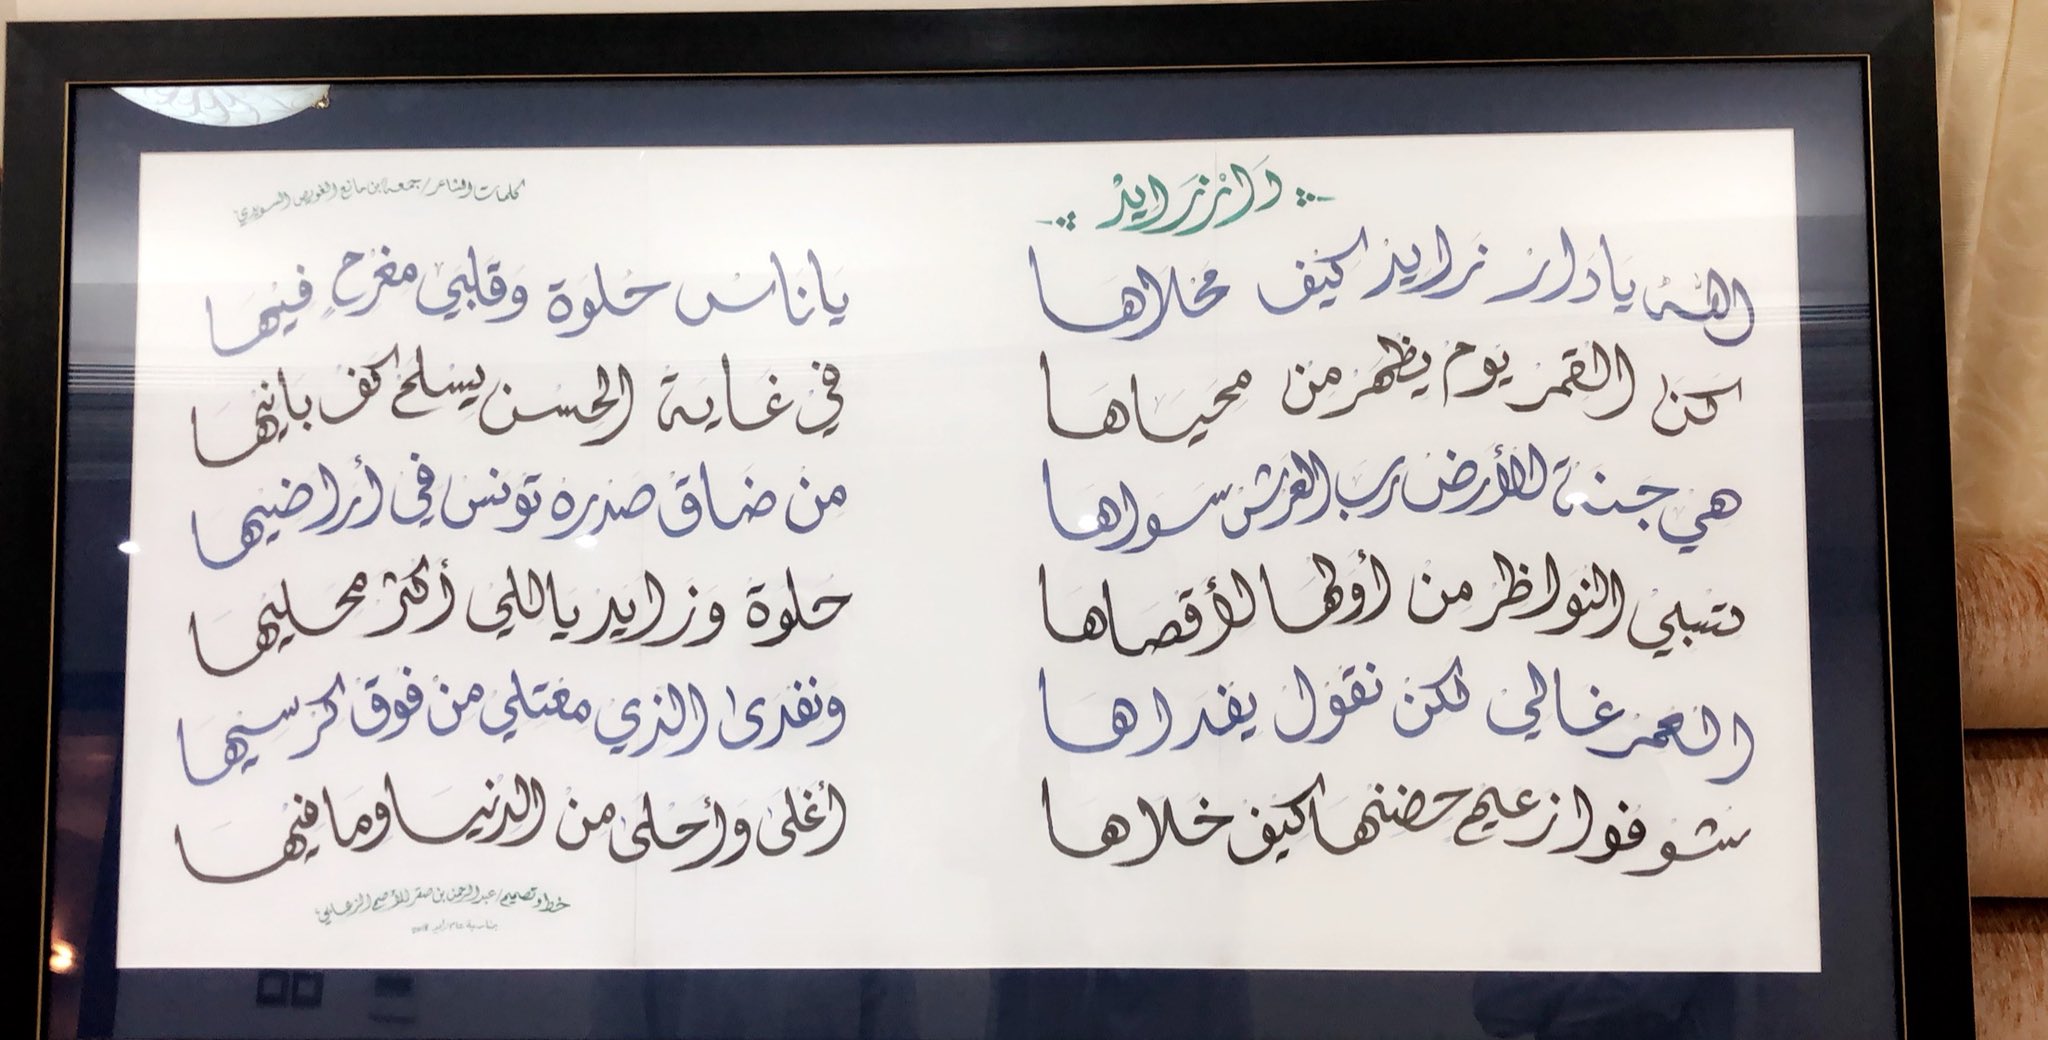 دار زايد
كلمات الشاعر/ جمعة بن مانع الغويص السويدي
الله يا دار زايد كيف محلاها
يا ناس حلوة وقلبي مغرم فيها
كن القمر يوم يظهر من محياها
في غاية الحسن يسلم كف بانيها
هي جنة الأرض رب العرش سواها
من ضاق صدره تونس في أراضيها
تسبي النواظر من أولها لأقصاها
حلوة وزايد يا اللي أكثر محليها
العمر غالي لكن نقول يفداها
ونفدى الذي معتلي من فوق كرسيها
شوفوا زعيم حضنها كيف خلاها
أغلى وأحلى من الدنيا وما فيها
خط وتصميم/ عبدالرحمن بن صقر الزعابي
بمناسبة عام زايد 2018